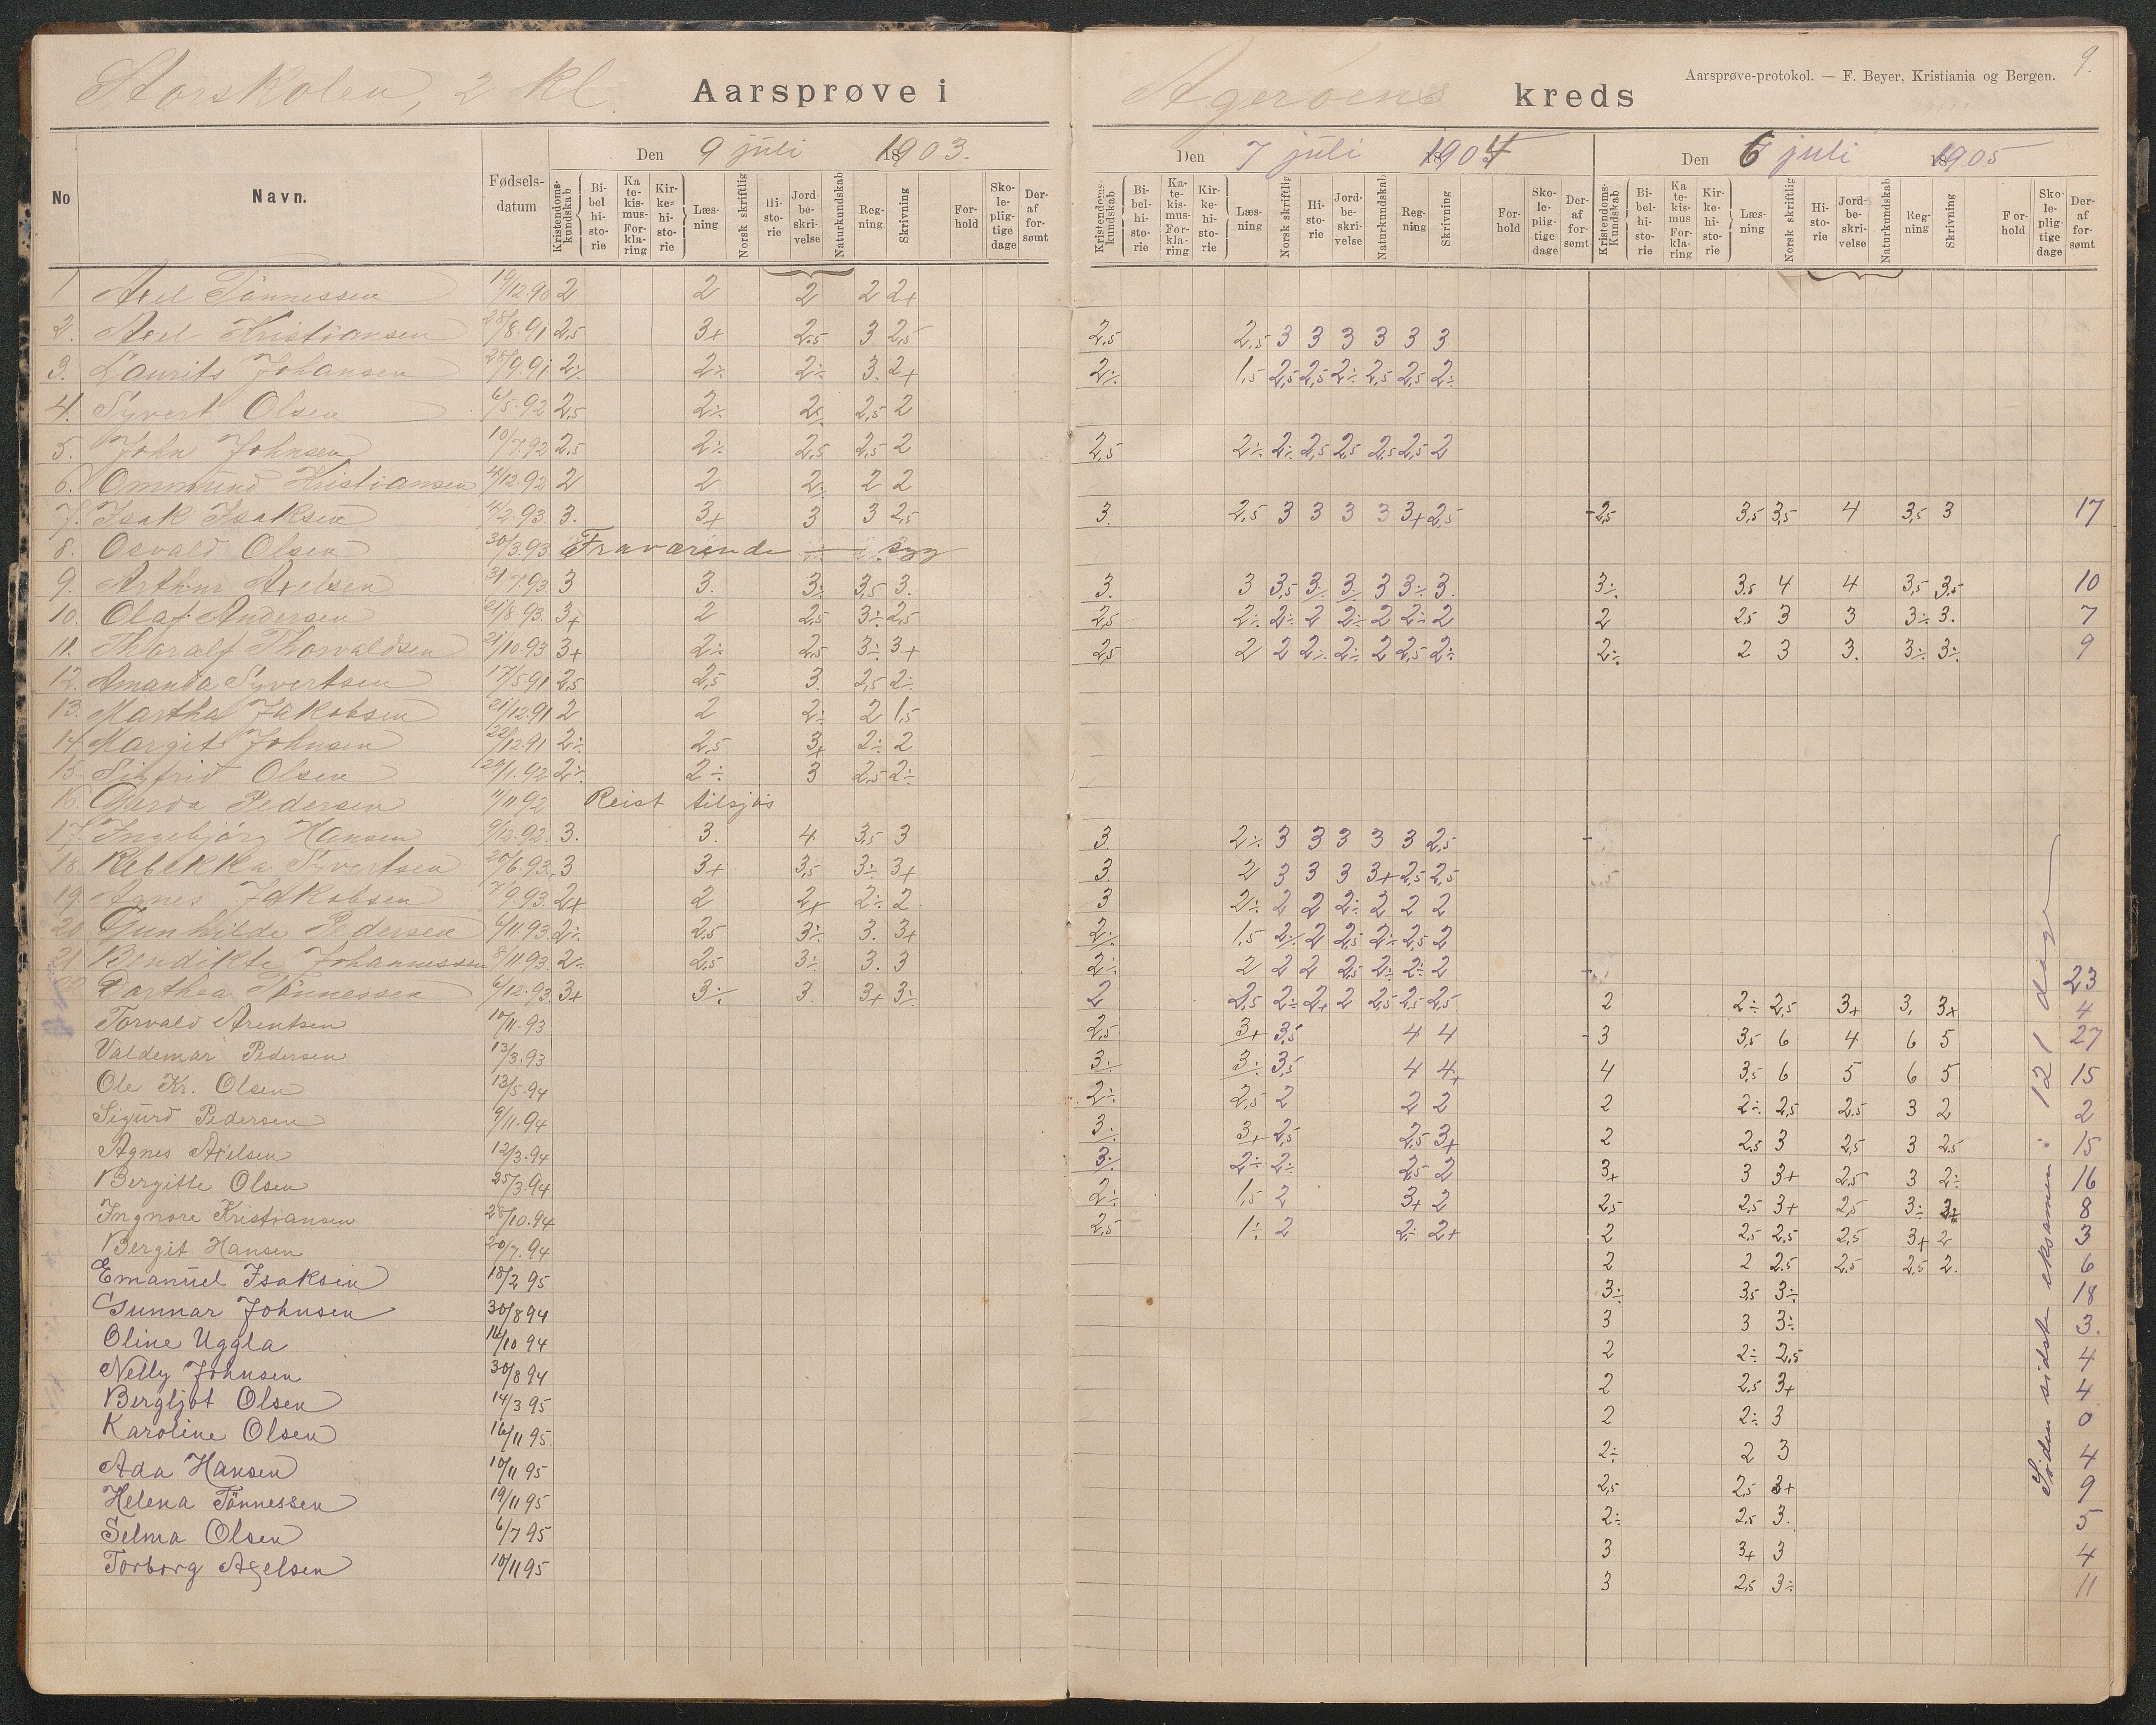 Storskolen, 2 kl. Aarsprøve i Agerøens kreds
Aarsprøve-protokol. — F. Beyer, Kristiania og Bergen. 9.
Den 9 juli 1903.
Den 7 juli 1904
Den 6 juli 1905
No Navn. Fødselsdatum
Kristendomskundskab Bibelhistorie Katekismus Forklaring Kirkehistorie Læsning Norsk skriftlig Historie Jordbeskrivelse Naturkundskab Regning Skrivning Forhold Skolepligtige dage Deraf forsømt
Kristendomskundskab Bibelhistorie Katekismus Forklaring Kirkehistorie Læsning Norsk skriftlig Historie Jordbeskrivelse Naturkundskab Regning Skrivning Forhold Skolepligtige dage Deraf forsømt
Kristendoms-Kundskab Bibelhistorie Katekismus Forklaring Kirkehistorie Læsning Norsk skriftlig Historie Jordbeskrivelse Naturkundskab Regning Skrivning Forhold Skolepligtige dage Deraf forsømt
1 Axel Tönnessen 19/12.90 2 2 2 2 2+
2. Axel Kristiansen 28/8.91 2,5 3+ 2,5 3 2,5 2,5 2,5 3 3 3 3 3 3
3. Laurits Johansen 28/9.91 2÷ 2÷ 2÷ 3. 2+ 2÷ 1,5 2,5 2,5 2÷ 2,5 2,5 2÷
4. Syvert Olsen 6/5.92 2,5 2÷ 2÷ 2,5 2
5. John Johnsen 10/7.92 2,5 2÷ 2,5 2,5 2 2,5 2÷ 2÷ 2,5 2,5 2,5 2,5 2
6. Ommund Kristiansen 4/12.92 2 2 2÷ 2 2
7. Isak Isaksen 4/2.93. 3. 3+ 3 3 2,5 3. 2,5 3 3 3 3 3+ 2,5 2,5 3,5 3,5 4 3,5 3 17
8. Osvald Olsen 30/3.93. Fraværende — syg
9. Arthur Axelsen 31/7.93. 3 3. 3÷ 3,5 3. 3. 3 3,5 3÷ 3÷ 3 3÷ 3. 3÷ 3,5 4 4 3,5 3,5 10
10. Olaf Andersen 21/8.93. 3+ 2 2,5 3÷ 2,5 2,5 2÷ 2÷ 2 2÷ 2 2÷ 2 2 2,5 3 3 3÷ 3. 7
11. Thoralf Thorvaldsen 21/10.93 3+ 2÷ 2,5 3÷ 3+ 2,5 2 2 2÷ 2÷ 2 2,5 2÷ 2÷ 2 3 3. 3÷ 3÷ 9
12. Amanda Syvertsen 17/5.91 2,5 2,5 3. 2,5 2÷
13. Martha Jakobsen 21/12.91 2 2 2÷ 2 1,5
14. Margit Johnsen 22/12.91 2÷ 2,5 3+ 2÷ 2
15. Sigfrid Olsen 29/1.92 2÷ 2÷ 3 2,5 2÷
16. Gerda Pedersen 11/11.92 Reist tilsjøs
17. Ingebjörg Hansen 9/12.92. 3. 3. 4 3,5 3 3. 2÷ 3 3 3 3 3 2,5
18. Rebekka Syvertsen 20/6.93. 3 3+ 3,5 3÷ 3+ 3. 2 3 3 3 3+ 2,5 2,5
19. Agnes Jakobsen 7/9.93. 2+ 2 2+ 2÷ 2 3 2÷ 2 2 2÷ 2 2 2
20. Gunhilde Pedersen 6/11.93. 2÷ 2,5 3÷ 3. 3+ 2÷ 1,5 2÷ 2 2,5 2÷ 2,5 2
21. Bendikte Johannessen 8/11.93. 2÷ 2,5 3÷ 3. 3 2÷ 2 2 2 2,5 2÷ 2÷ 2 23
22. Darthea Tönnessen 6/12.93. 3+ 3÷ 3. 3+ 3÷ 2 2,5 2÷ 2+ 2 2,5 2,5 2,5 2 2÷ 2,5 3+ 3, 3+ 4
Torvald Arentsen 10/11.93 2,5 3+ 3,5 4 4 3 3,5 6 4 6 5 27
Valdemar Pedersen 13/3.93 3÷ 3÷ 3,5 4 4+ 4 3,5 6 5 6 5 15
Ole Kr. Olsen 13/5.94 2÷ 2,5 2 2 2 2 2÷ 2,5 2,5 3 2 2
Sigurd Pedersen 9/11.94 3÷ 3+ 2,5 2,5 3+ 2 2,5 3 2,5 3 2,5 15
Agnes Axelsen 12/3.94 3÷ 2÷ 2÷ 2,5 2 3+ 3 3+ 2,5 3 2÷ 16
Bergitte Olsen 25/3.94 2÷ 1,5 2 3+ 2 2,5 2,5 3+ 2,5 3÷ 3+ 8
Ingnore Kristiansen 28/10.94 2,5 1÷ 2 2÷ 2+ 2 2,5 2,5 2,5 3+ 2 3
Bergit Hansen 20/7.94 2 2 2,5 2,5 2,5 2. 6
Emanuel Isaksen 18/2 95 3÷ 3,5 3÷ 18
Gunnar Johnsen 30/8 94 3 3 3÷ 3.
Oline Uggla 14/10 94 2 2÷ 2,5 4
Nelly Johnsen 30/8 94 2 2,5 3+ 4
Bergljot Olsen 14/3 95 2 2÷ 3 0
Karoline Olsen 16/11 95 2÷ 2 3 4
Ada Hansen 10/11 95 2,5 2,5 3+ 9
Helena Tönnessen 19/11 95 2÷ 2,5 3. 5
Selma Olsen 6/7 95 3 3+ 3 4
Torborg Axelsen 10/11 95 3 2,5 3÷ 11
Siden sidste eksamen: 121 dage